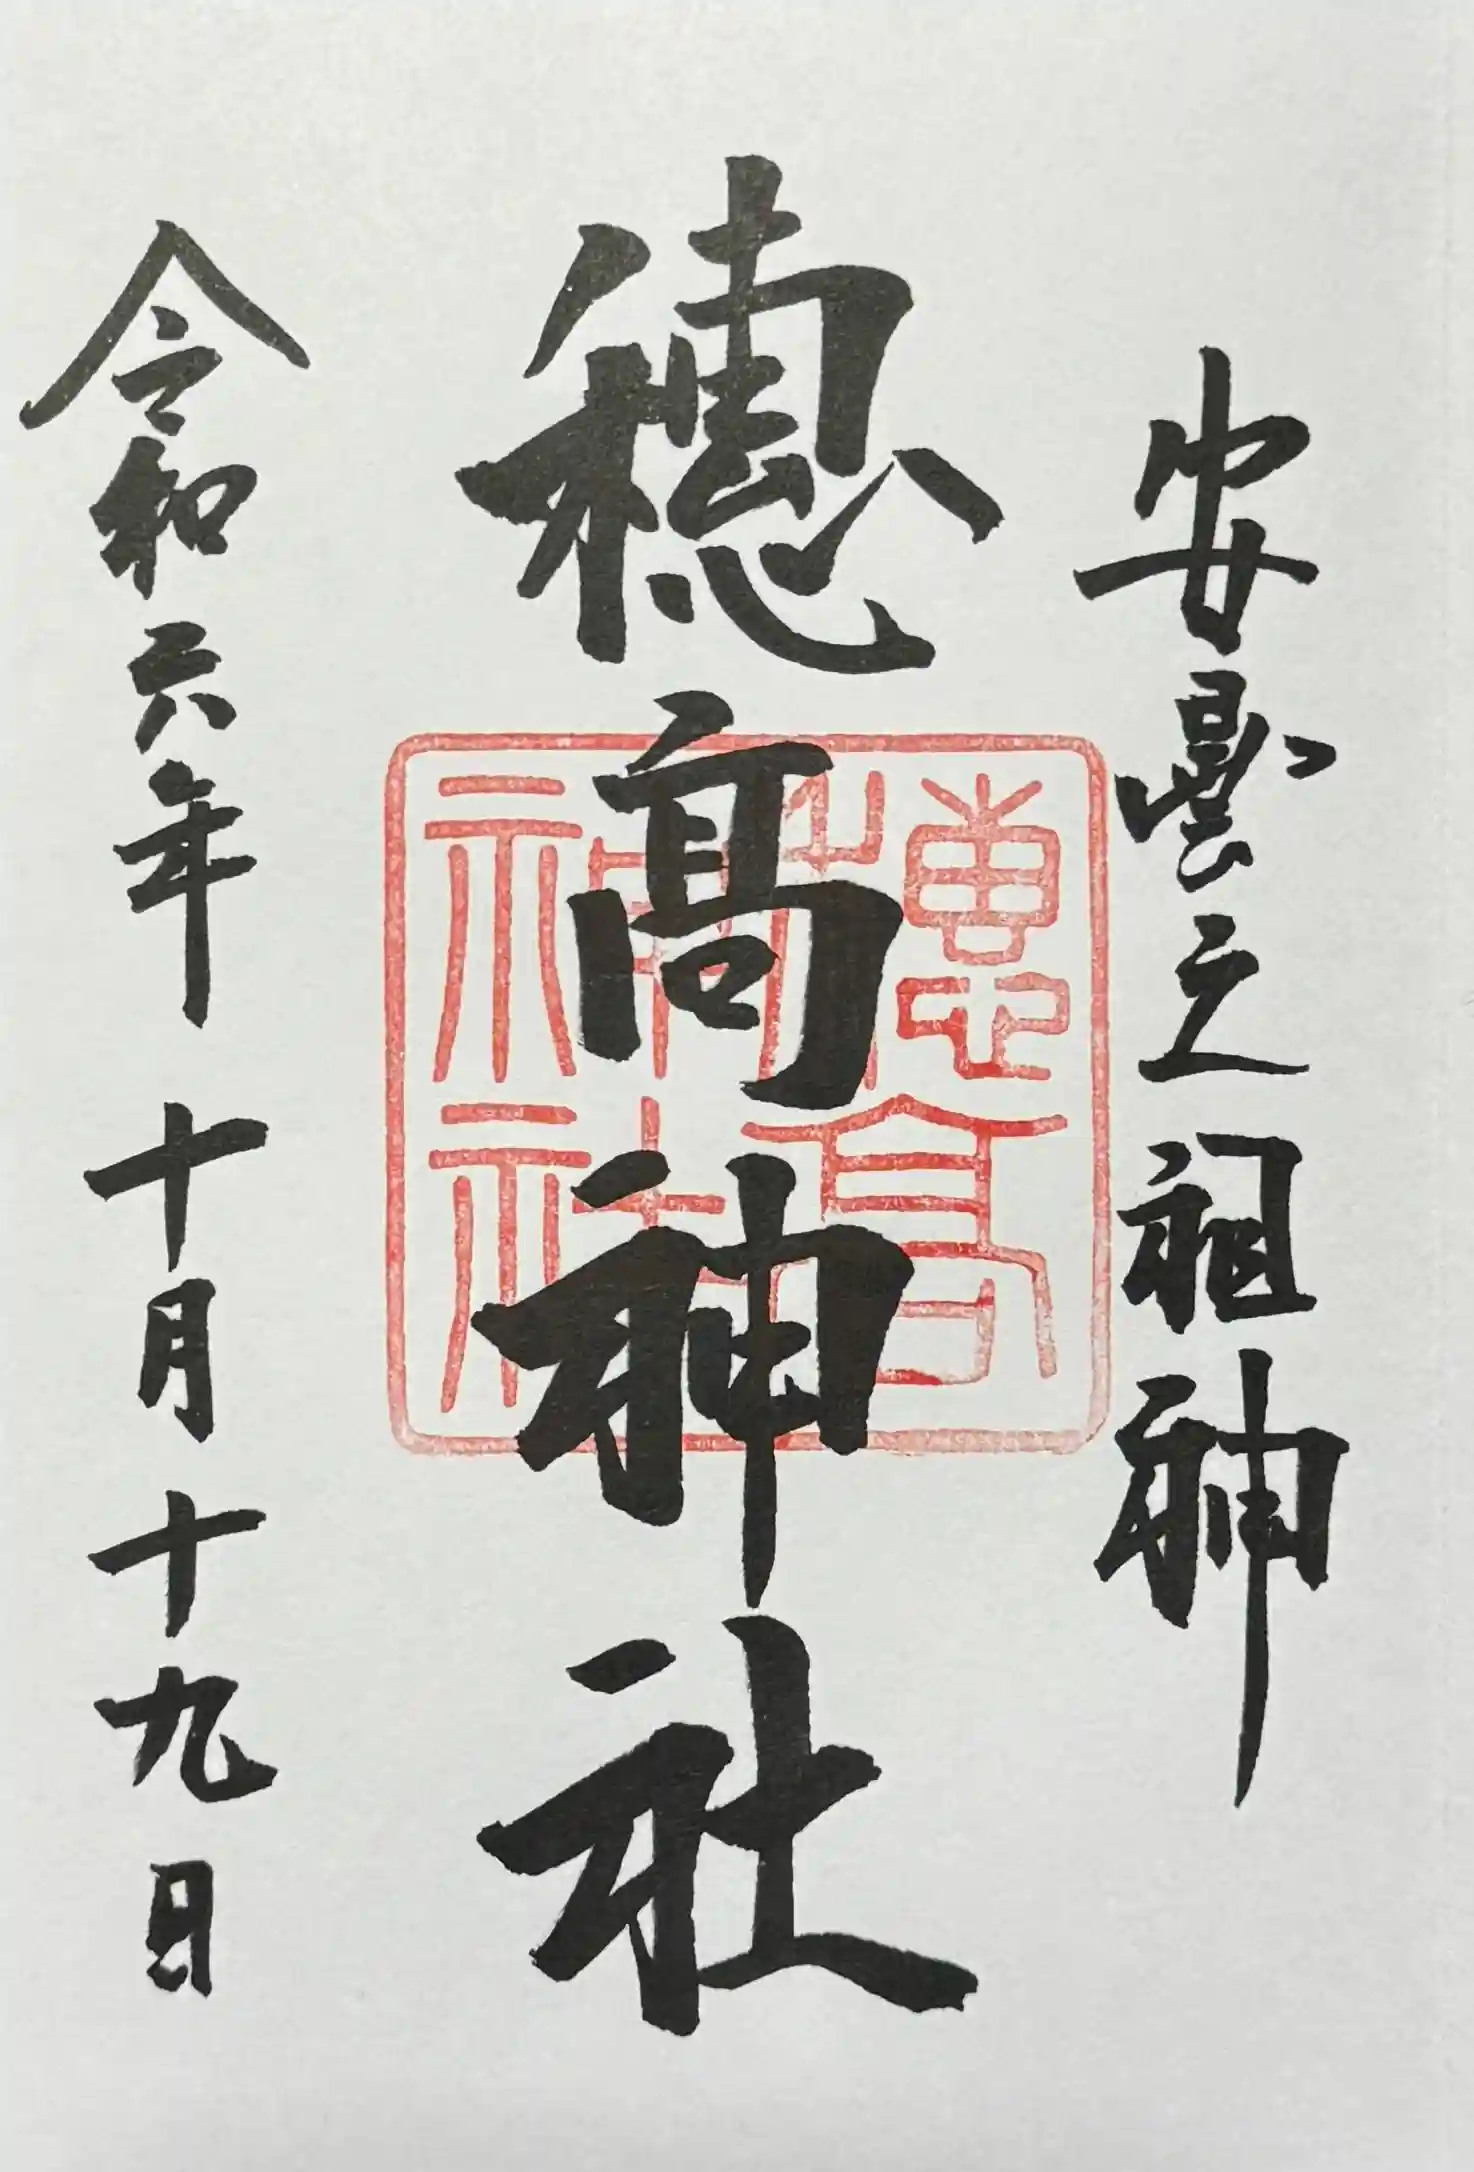 安曇之祖神
穂髙神社
穂高神社
令和六年十月十九日